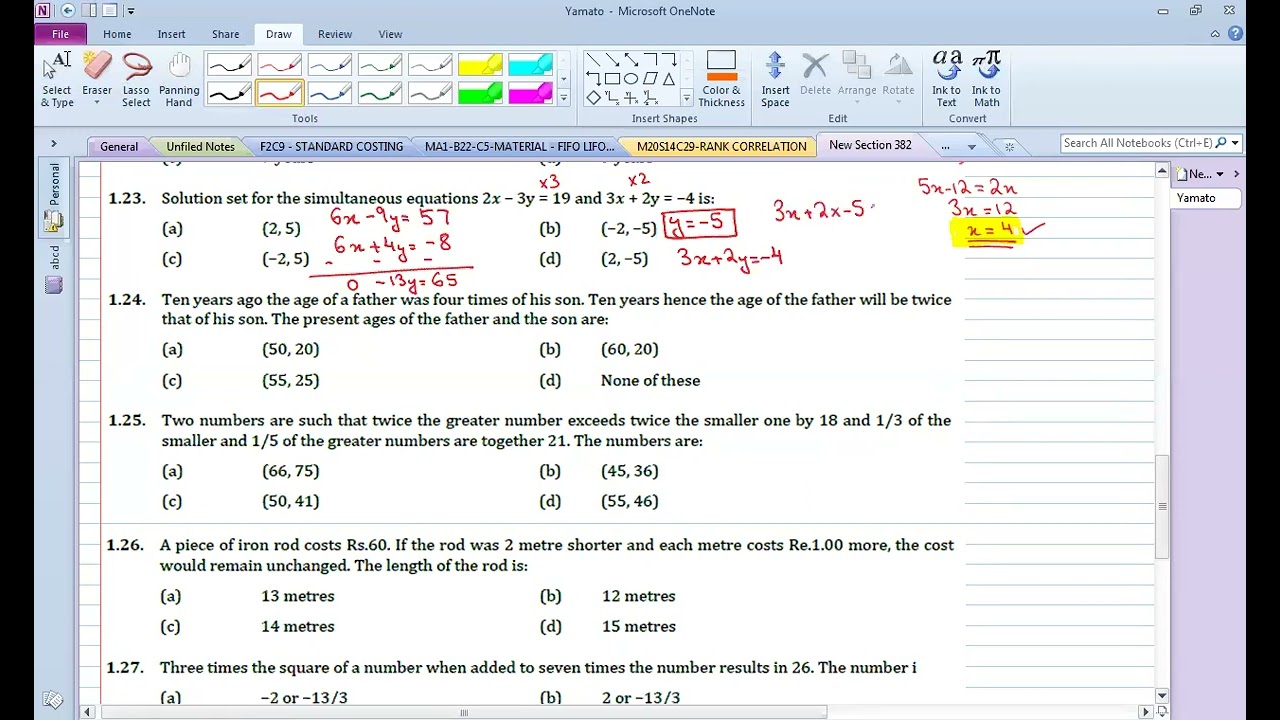 Yamato - Microsoft OneNote
File Home Insert Share Draw Review View
Select & Type
Eraser
Lasso Select
Panning Hand
Color & Thickness
Insert Space
Delete
Arrange
Rotate
Ink to Text
Ink to Math
Tools
Insert Shapes
Edit
Convert
General
Unfiled Notes
F2C9 - STANDARD COSTING
MA1-B22-C5-MATERIAL - FIFO LIFO...
M20S14C29-RANK CORRELATION
New Section 382
...
Search All Notebooks (Ctrl+E)
Personal
abcd
Ne...
Yamato
×3 ×2
1.23. Solution set for the simultaneous equations 2x − 3y = 19 and 3x + 2y = −4 is:
(a) (2, 5) (b) (−2, −5)
(c) (−2, 5) (d) (2, −5)
6x-9y= 57
6x+4y= -8
- - -
0 -13y=65
y=-5
3x+2y=-4
3x+2x-5
5x-12=2x
3x=12
x=4
1.24. Ten years ago the age of a father was four times of his son. Ten years hence the age of the father will be twice
that of his son. The present ages of the father and the son are:
(a) (50, 20) (b) (60, 20)
(c) (55, 25) (d) None of these
1.25. Two numbers are such that twice the greater number exceeds twice the smaller one by 18 and 1/3 of the
smaller and 1/5 of the greater numbers are together 21. The numbers are:
(a) (66, 75) (b) (45, 36)
(c) (50, 41) (d) (55, 46)
1.26. A piece of iron rod costs Rs.60. If the rod was 2 metre shorter and each metre costs Re.1.00 more, the cost
would remain unchanged. The length of the rod is:
(a) 13 metres (b) 12 metres
(c) 14 metres (d) 15 metres
1.27. Three times the square of a number when added to seven times the number results in 26. The number i
(a) −2 or −13/3 (b) 2 or −13/3